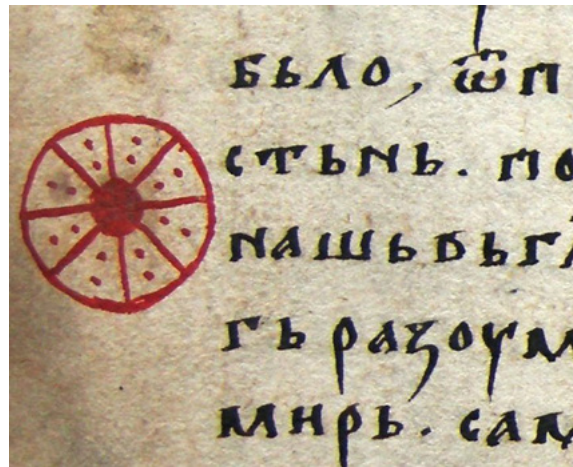 бьло, ѿп
стьнь. по
нашьбьгл
гь разоум
мирь. сам